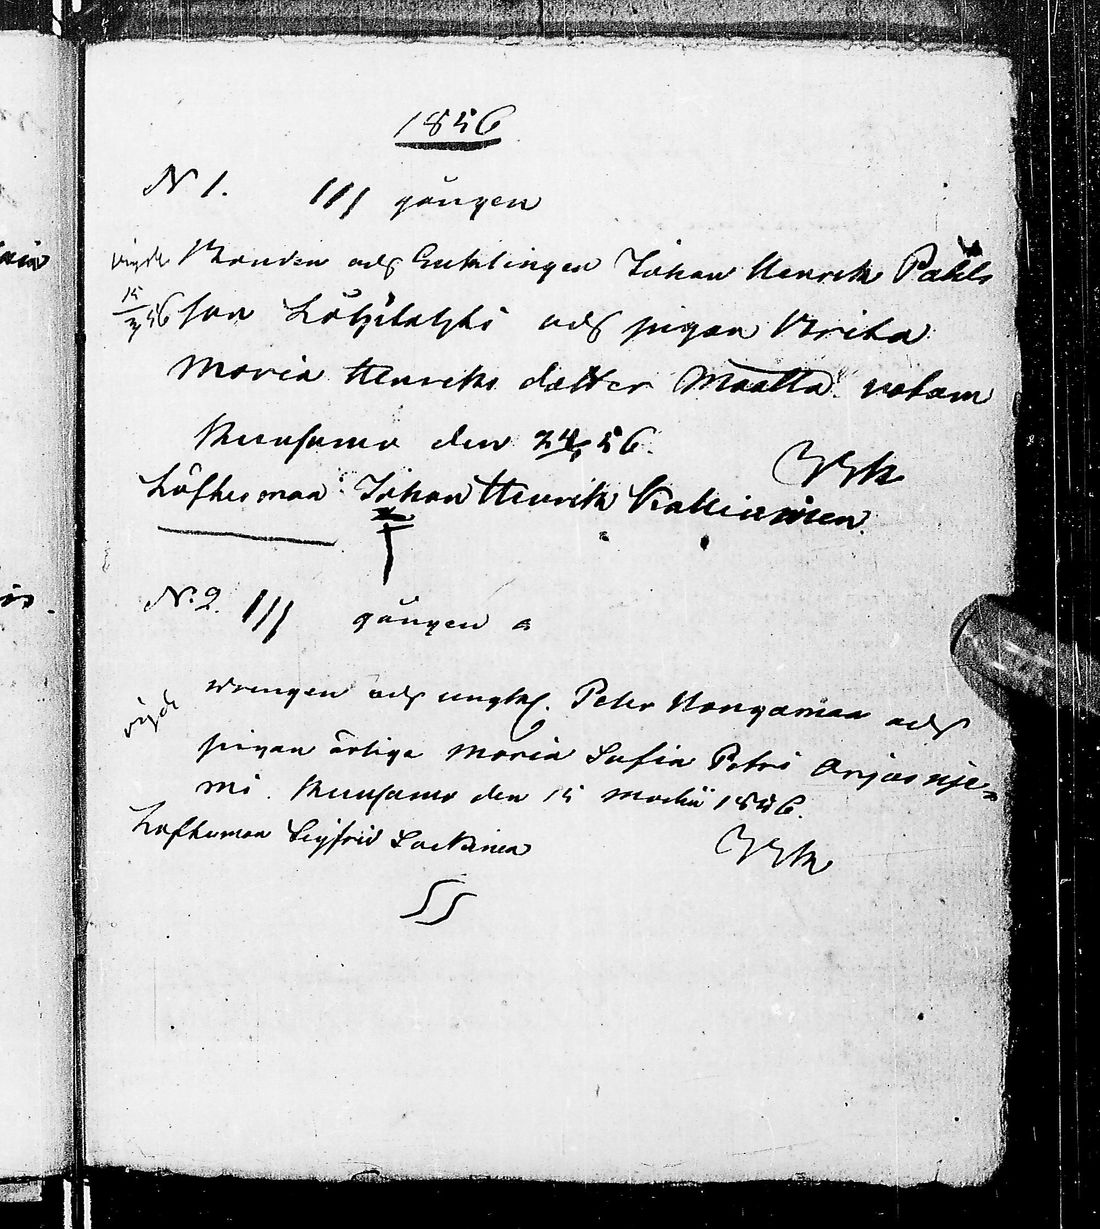 1856
N 1. III gången
vigde Bonden och Enklingen Johan Henrik Påhls
15/3 56 son och pigan Brita
Maria Henriks dotter Määttä
Kuusamo den 24/1 56.
Löftesman Johan Henrik Kallunginen
N:2. III gången a
vigde drengen och ungk. Peter Kongasmaa och
pigan ärliga Maria Sofia Petri Arjasnje-
mi. Kuusamo den 15 Martii 1856.
Löftesman Sigfrid Sackinen
SS